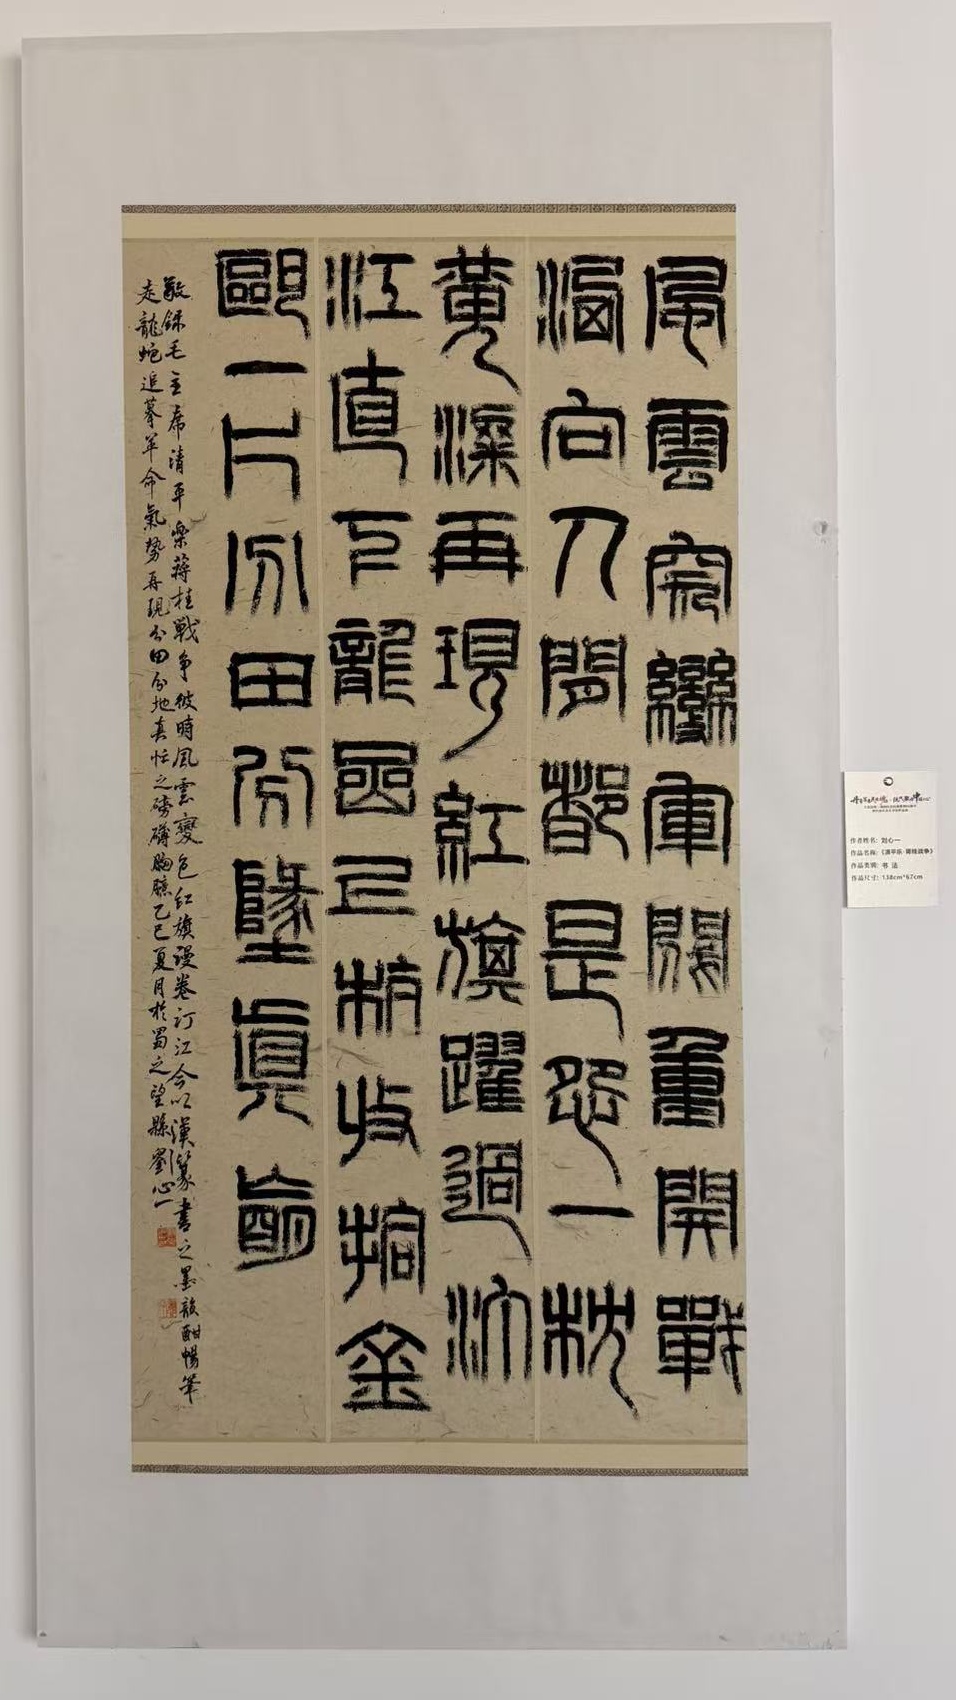 風雲突變軍閥重開戰
灑向人間都是怨一枕
黃粱再現紅旗躍過汀
江直下龍巖上杭收拾金
甌一片分田分地真忙
敬錄毛主席清平樂蔣桂戰爭彼時風雲變色紅旗漫卷汀江今以漢篆書之墨韻酣暢筆
走龍蛇追摹革命氣勢再現分田分地真忙之磅礴胸臆乙巳夏月於蜀之望縣劉心一
作者姓名：刘心一
作品名称：《清平乐·蒋桂战争》
作品类别：书 法
作品尺寸：138cm*67cm